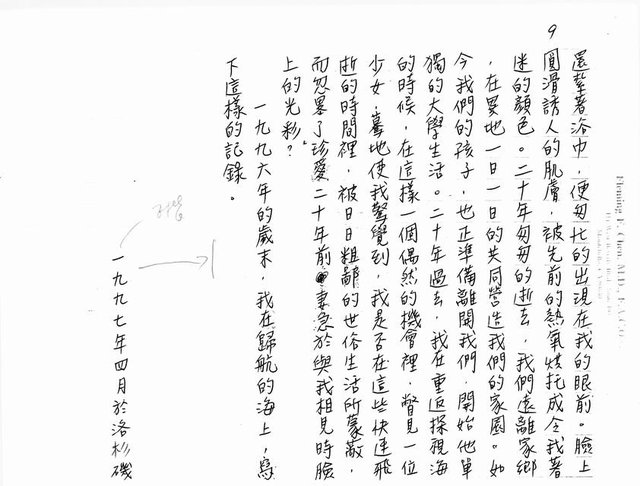 9
還擊著洛巾，便匆忙的出現在我的眼前。臉上
圓滑誘人的肌膚，被先前的熱氣烘托成令我著
迷的顏色。二十年匆匆的逝去，我們遠離家鄉
，在異地一日一日的共同營造我們的家園。如
今我們的孩子，也正準備離開我們，開始他單
獨的大學生活。二十年過去，我在重返探視海
的時候，在這樣一個偶然的機會裡，瞥見一位
少女，驀地使我驚覺到，我是否在這些快速飛
逝的時間裡，被日日粗鄙的世俗生活所蒙蔽，
而忽畧了珍愛二十年前妻急於與我相見時臉
上的光彩？
一九九六年的歲末，我在歸航的海上，寫
下這樣的記錄。
一九九七年四月於洛杉磯
Fleming F. Chen, M.D., F.A.C.O.